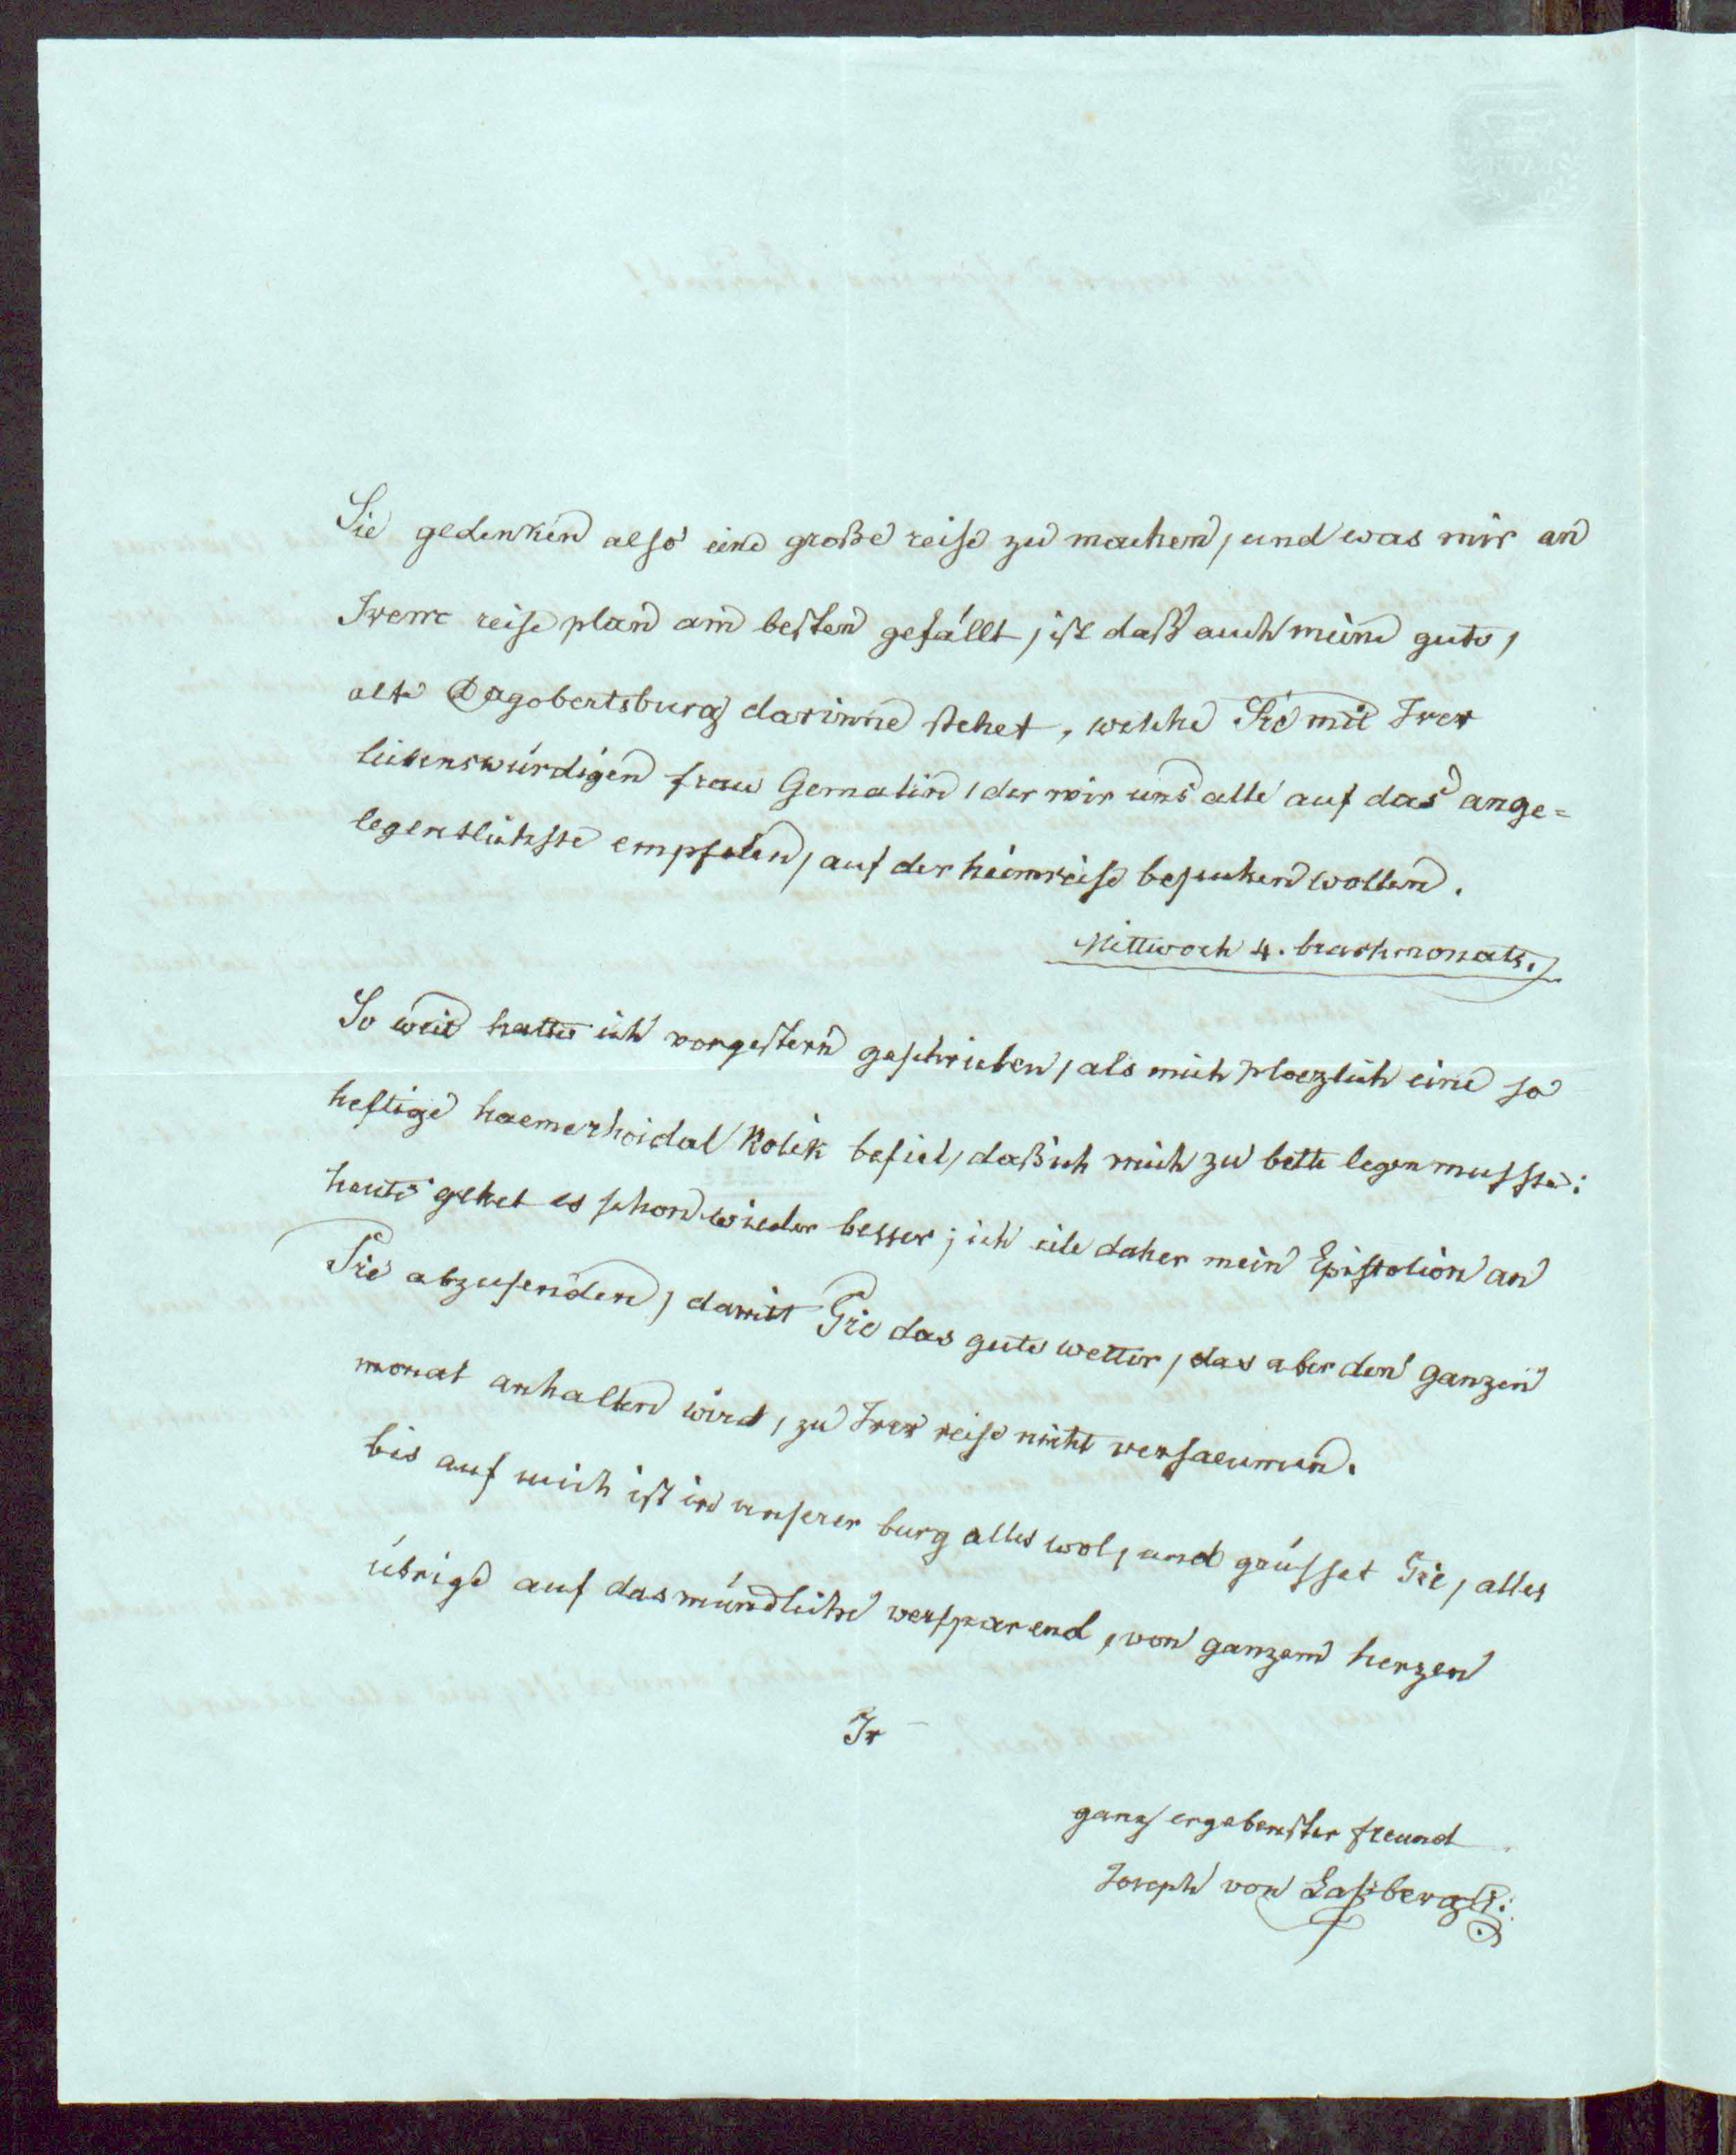 Sie gedenken also eine große reise zu machen, und was mir an
Irem reise plan am besten gefällt, ist daß auch meine gute,
alte Dagobertsburg darinne stehet, welche Sie mit Irer
liebenswürdigen frau Gemalin, der wir uns alle auf das ange=
legentlichste empfelen, auf der heimreise besuchen wollen.
Mittwoch 4. brachmonats.
So weit hatte ich vorgestern geschrieben, als mich ploezlich eine so
heftige haemerhoidal Kolik befiel, daß ich mich zu bette legen musste:
heute gehet es schon wieder besser; ich eile daher mein Epistolion an
Sie abzusenden, damit Sie das gute wetter, das aber den ganzen
monat anhalten wird, zu Irer reise nicht versaeumen.
bis auf mich ist in unserer burg alles wol, und grüsset Sie, alles
übrige auf das mündliche versparend, von ganzem herzen
Ir
ganz ergebenster freund
Joseph von Laßberg